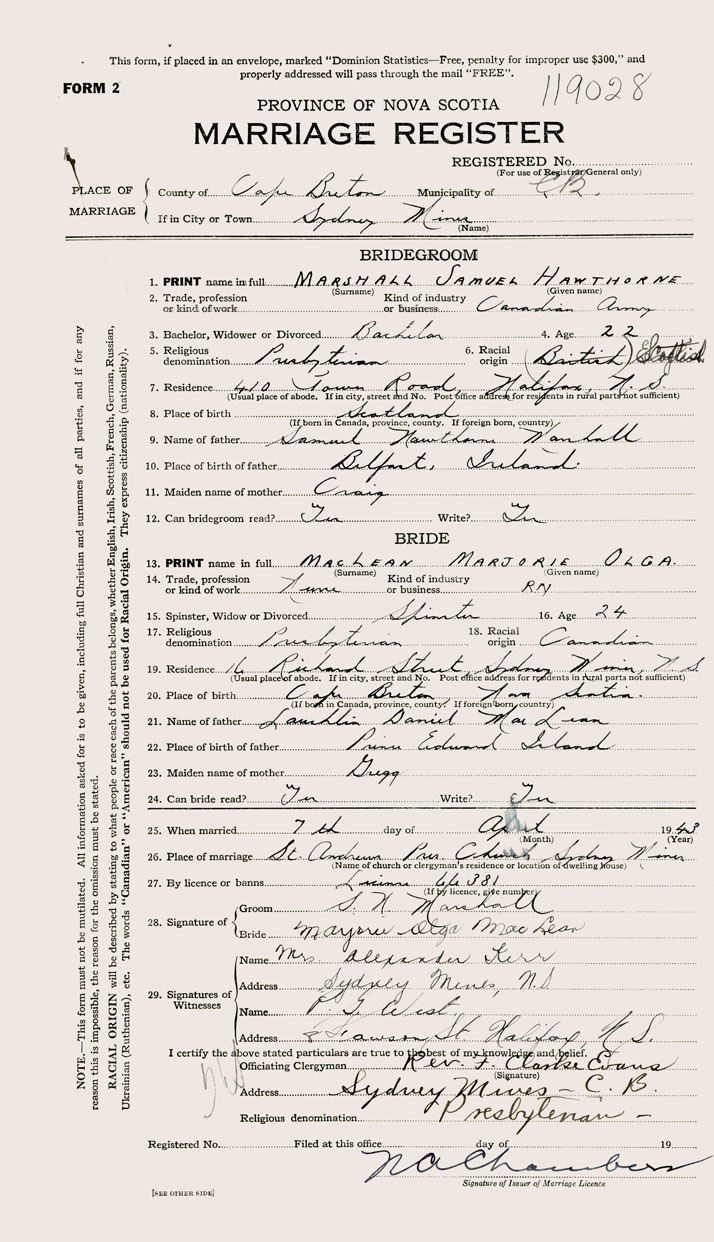 This form, if placed in an envelope, marked "Dominion Statistics—Free, penalty for improper use $300," and
properly addressed will pass through the mail "FREE".
FORM 2
119028
PROVINCE OF NOVA SCOTIA
MARRIAGE REGISTER
REGISTERED No.
(For use of Registrar General only)
PLACE OF MARRIAGE
County of Cape Breton Municipality of C.B.
If in City or Town Sydney Mines
(Name)
BRIDEGROOM
1. PRINT name in full MARSHALL SAMUEL HAWTHORNE
(Surname) (Given name)
2. Trade, profession or kind of work Kind of industry or business Canadian Army
3. Bachelor, Widower or Divorced Bachelor 4. Age 22
5. Religious denomination Presbyterian 6. Racial origin (British) Scottish
7. Residence 410 Tower Road, Halifax, N.S.
(Usual place of abode. If in city, street and No. Post office address for residents in rural parts not sufficient)
8. Place of birth Scotland
(If born in Canada, province, county. If foreign born, country)
9. Name of father Samuel Hawthorne Marshall
10. Place of birth of father Belfast, Ireland.
11. Maiden name of mother Craig
12. Can bridegroom read? Yes Write? Yes
BRIDE
13. PRINT name in full MACLEAN MARJORIE OLGA.
(Surname) (Given name)
14. Trade, profession or kind of work Nurse Kind of industry or business RN
15. Spinster, Widow or Divorced Spinster 16. Age 24
17. Religious denomination Presbyterian 18. Racial origin Canadian
19. Residence 16 Richard Street, Sydney Mines, N.S.
(Usual place of abode. If in city, street and No. Post office address for residents in rural parts not sufficient)
20. Place of birth Cape Breton, Nova Scotia.
(If born in Canada, province, county. If foreign born, country)
21. Name of father Lauchlin Daniel MacLean
22. Place of birth of father Prince Edward Island
23. Maiden name of mother Gregg
24. Can bride read? Yes Write? Yes
25. When married 7th day of April 1943
(Month) (Year)
26. Place of marriage St. Andrews Pres. Church, Sydney Mines
(Name of church or clergyman's residence or location of dwelling house)
27. By licence or banns License 66381
(If by licence, give number)
28. Signature of
Groom S. H. Marshall
Bride Marjorie Olga MacLean
29. Signatures of Witnesses
Name Mrs. Alexander Kerr
Address Sydney Mines, N.S.
Name P. G. West.
Address Lawson St. Halifax, N.S.
I certify the above stated particulars are true to the best of my knowledge and belief.
Officiating Clergyman Rev. F. Clarke Evans
(Signature)
Address Sydney Mines - C. B.
Religious denomination Presbyterian -
Registered No. Filed at this office day of 19
N A Chambers
Signature of Issuer of Marriage Licence
[SEE OTHER SIDE]
NOTE.—This form must not be mutilated. All information asked for is to be given, including full Christian and surnames of all parties, and if for any
reason this is impossible, the reason for the omission must be stated.
RACIAL ORIGIN will be described by stating to what people or race each of the parents belongs, whether English, Irish, Scottish, French, German, Russian,
Ukrainian (Ruthenian), etc. The words "Canadian" or "American" should not be used for Racial Origin. They express citizenship (nationality).